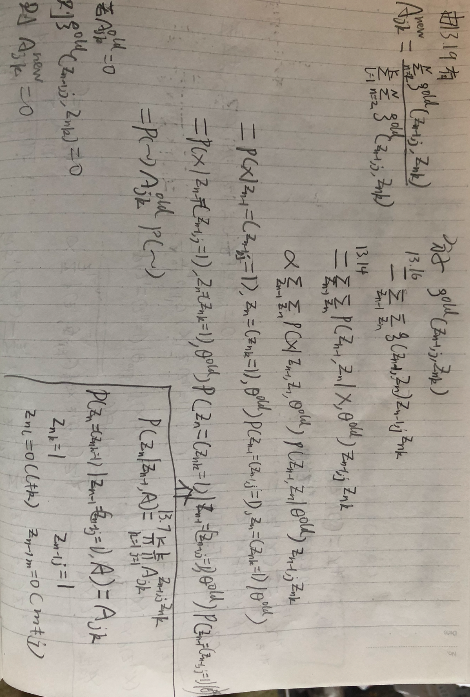 由13.19有
A_jk^new = Σ_{n=2}^N ξ^old(z_{n-1,j}, z_nk) / Σ_{l=1}^K Σ_{n=2}^N ξ^old(z_{n-1,j}, z_nl)
对于 ξ^old(z_{n-1,j}, z_nk)
13.16
= Σ_{z_{n-1}} Σ_{z_n} ξ(z_{n-1}, z_n) z_{n-1,j} z_nk
13.14
= Σ_{z_{n-1}} Σ_{z_n} P(z_{n-1}, z_n | X, θ^old) z_{n-1,j} z_nk
∝ Σ_{z_{n-1}} Σ_{z_n} P(X | z_{n-1}, z_n, θ^old) P(z_{n-1}, z_n | θ^old) z_{n-1,j} z_nk
= P(X | z_{n-1} = (z_{n-1,j} = 1), z_n = (z_nk = 1), θ^old) P(z_{n-1} = (z_{n-1,j} = 1), z_n = (z_nk = 1) | θ^old)
= P(X | z_{n-1} = (z_{n-1,j} = 1), z_n = (z_nk = 1), θ^old) P(z_n = (z_nk = 1) | z_{n-1} = (z_{n-1,j} = 1), θ^old) P(z_{n-1} = (z_{n-1,j} = 1) |
= P(~) A_jk^old P(~)
若 A_jk^old = 0
则 ξ^old(z_{n-1,j}, z_nk) = 0
则 A_jk^new = 0
13.7
P(z_n | z_{n-1}, A) = Π_{k=1}^K Π_{j=1}^K A_jk^{z_{n-1,j} z_nk}
P(z_n = (z_nk = 1) | z_{n-1} = (z_{n-1,j} = 1), A) = A_jk
z_nk = 1 z_{n-1,j} = 1
z_nl = 0 (l ≠ k) z_{n-1,m} = 0 (m ≠ j)